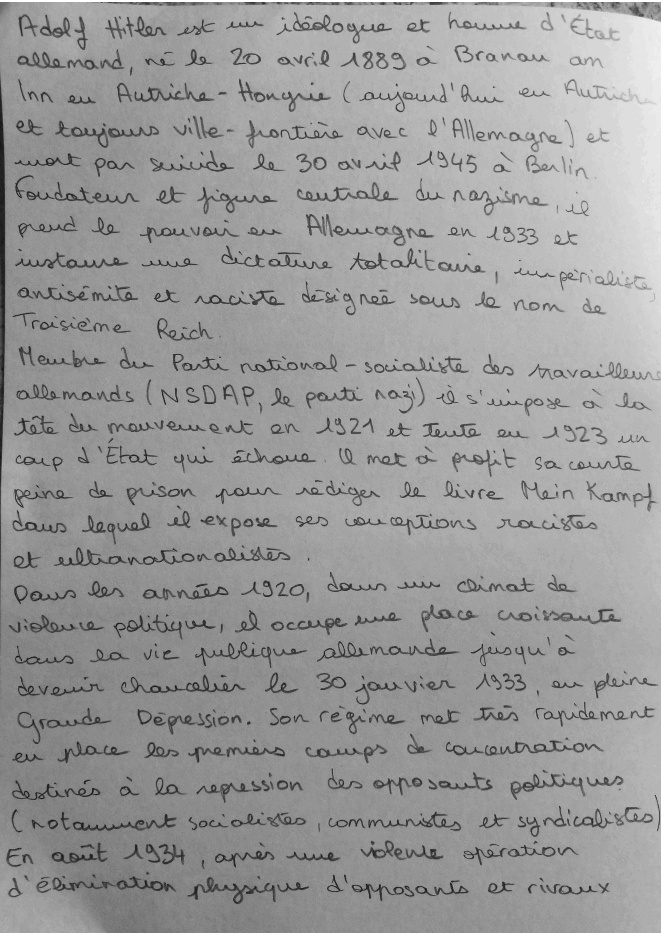 Adolf Hitler est un idéologue et homme d'État
allemand, né le 20 avril 1889 à Branau am
Inn en Autriche-Hongrie (aujourd'hui en Autriche
et toujours ville-frontière avec l'Allemagne) et
mort par suicide le 30 avril 1945 à Berlin.
Fondateur et figure centrale du nazisme, il
prend le pouvoir en Allemagne en 1933 et
instaure une dictature totalitaire, impérialiste,
antisémite et raciste désignée sous le nom de
Troisième Reich.
Membre du Parti national-socialiste des travailleurs
allemands (NSDAP, le parti nazi) il s'impose à la
tête du mouvement en 1921 et tente en 1923 un
coup d'État qui échoue. Il met à profit sa courte
peine de prison pour rédiger le livre Mein Kampf
dans lequel il expose ses conceptions racistes
et ultranationalistes.
Dans les années 1920, dans un climat de
violence politique, il occupe une place croissante
dans la vie publique allemande jusqu'à
devenir chancelier le 30 janvier 1933, en pleine
Grande Dépression. Son régime met très rapidement
en place les premiers camps de concentration
destinés à la repression des opposants politiques
(notamment socialistes, communistes et syndicalistes)
En août 1934, après une violente opération
d'élimination physique d'opposants et rivaux